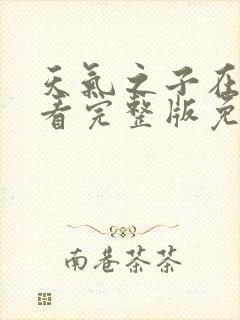 天氣之子在
看完整版免
南巷茶茶